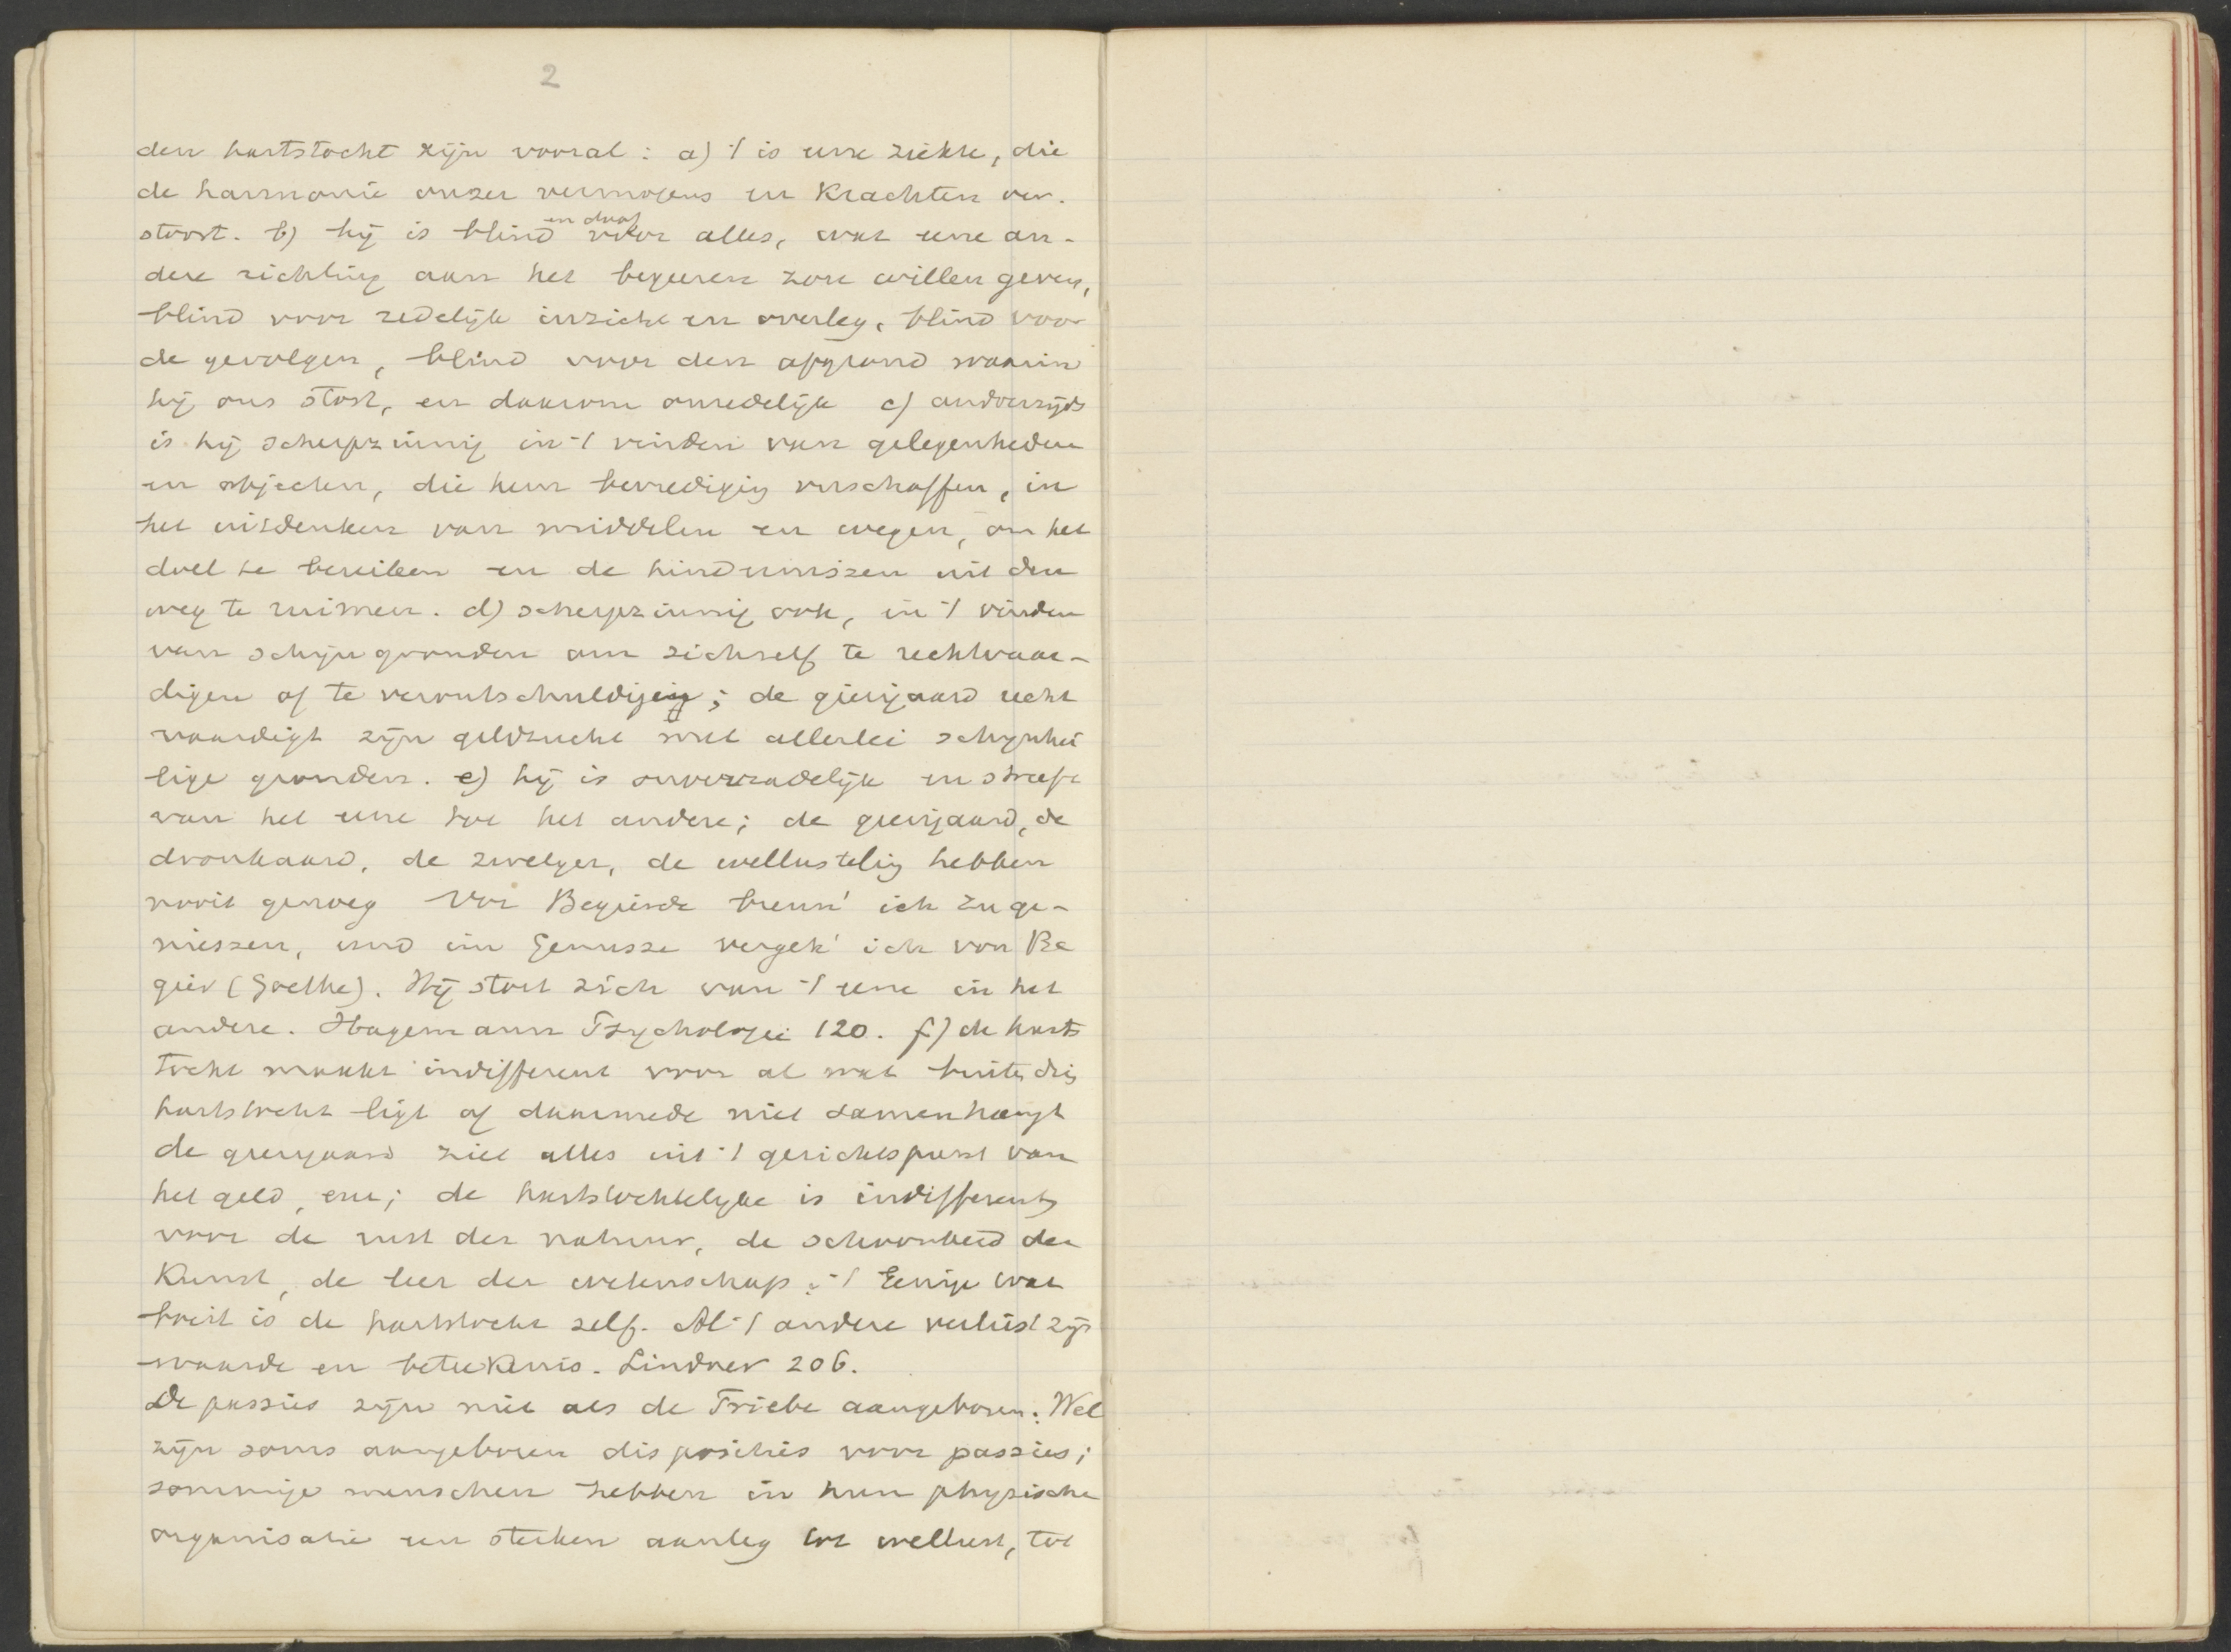 2
den hartstocht zijn vooral: a) 't is eene ziekte, die
de harmonie onzer vermogens en krachten ver-
stoort. b) hij is blind en doof voor alles, wat eene an-
dere richting aan het begeeren zou willen geven,
blind voor redelijk inzicht en overleg, blind voor
de gevolgen, blind voor den afgrond waarin
hij ons stort, en daarom onredelijk c) anderzijds
is hij scherpzinnig in 't vinden van gelegenheden
en objecten, die hem bevrediging verschaffen, in
het uitdenken van middelen en wegen, om het
doel te bereiken en de hindernissen uit den
weg te ruimen. d) scherpzinnig ook, in 't vinden
van schijngronden om zichzelf te rechtvaar-
digen of te verontschuldigen; de gierigaard recht
vaardigt zijn geldzucht met allerlei schijnhei
lige gronden. e) hij is onverzadelijk en streeft
van het eene tot het andere; de gierigaard, de
dronkaard, de zwelger, de wellusteling hebben
nooit genoeg Vor Begierde brenn' ich zu ge-
niessen, und im Genusse vergeh' ich vor Be
gier (Goethe). Hij stort zich van 't eene in het
andere. Hagemann Psychologie 120. f) de harts
tocht maakt indifferent voor al wat buiten die
hartstocht ligt of daarmede niet samenhangt
de gierigaard ziet alles uit 't gezichtspunt van
het geld, enz; de hartstochtelijke is indifferent
voor de rust der natuur, de schoonheid der
Kunst, de leer der wetenschap; 't Eenige wat
boeit is de hartstocht zelf. Al 't andere verliest zijn
waarde en beteekenis. Lindner 206.
De passies zijn niet als de Triebe aangeboren. Wel
zijn soms aangeboren disposities voor passies;
sommige menschen hebben in hun physische
organisatie een sterken aanleg tot wellust, tot